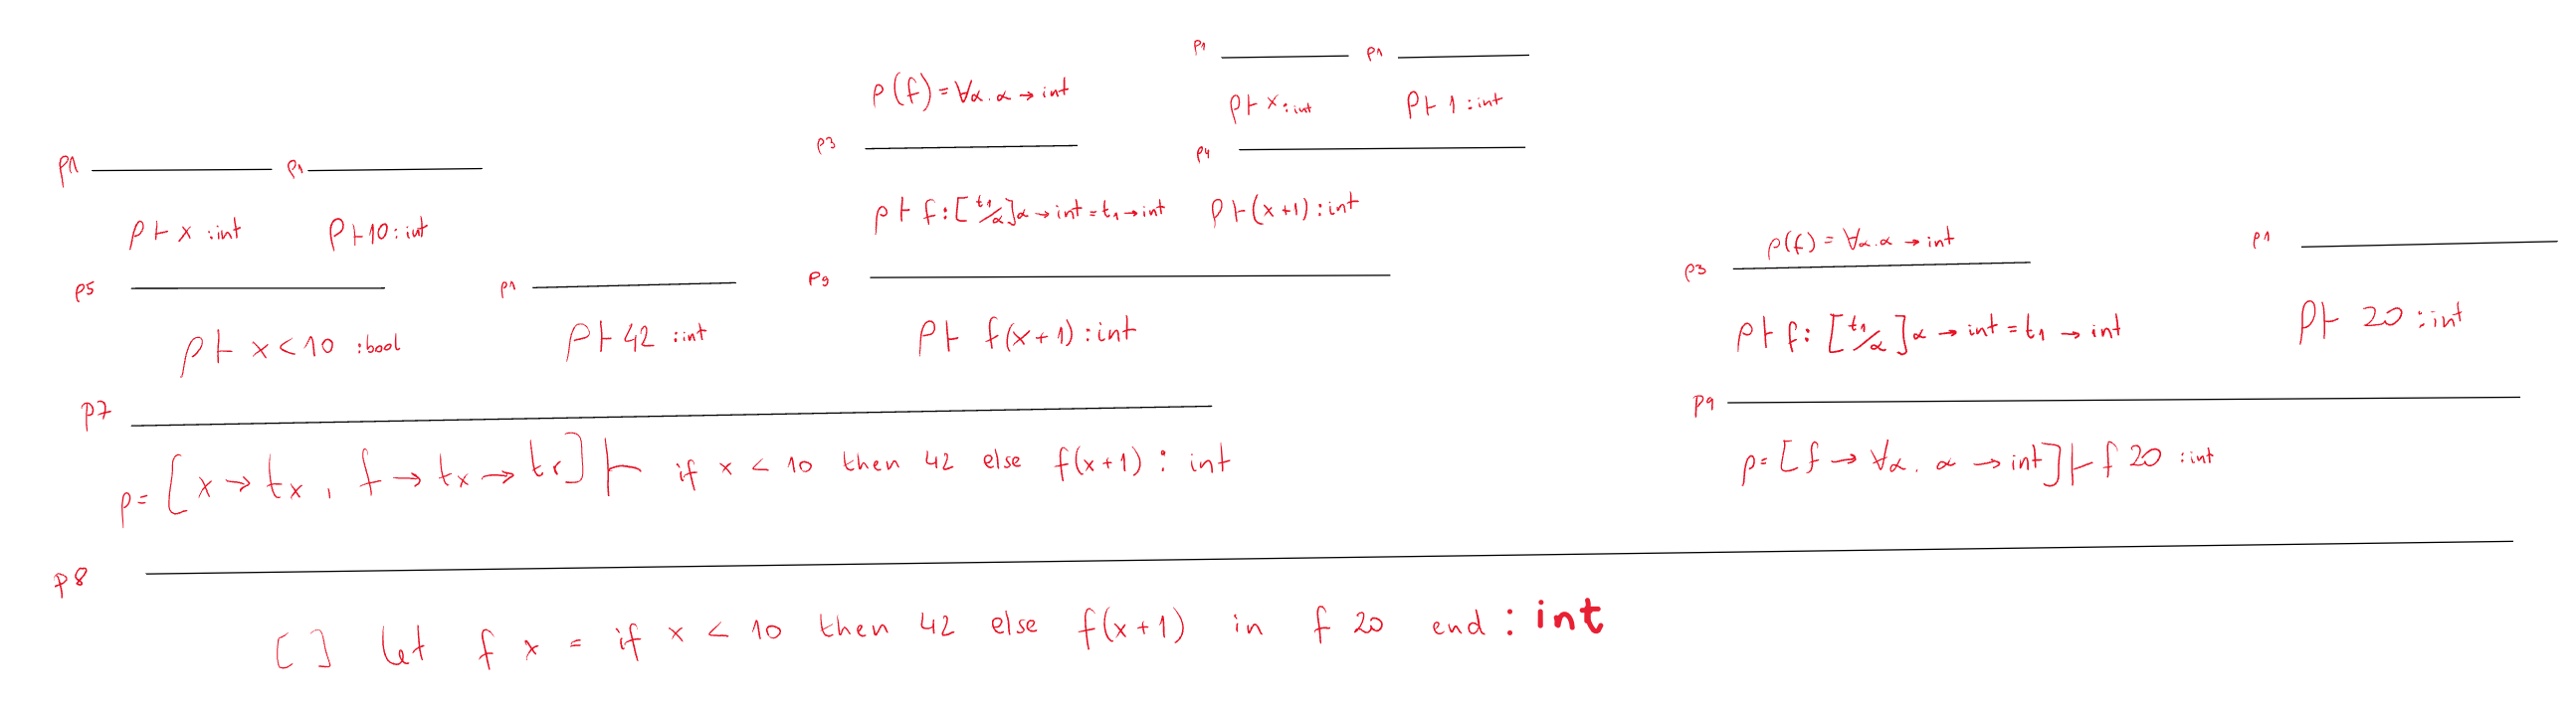 p1 p1
ρ(f) = ∀α. α → int
ρ ⊢ x : int ρ ⊢ 1 : int
p3 p4
p1 p1
ρ ⊢ f : [t₁/α] α → int = t₁ → int ρ ⊢ (x+1) : int
ρ ⊢ x : int ρ ⊢ 10 : int
ρ(f) = ∀α. α → int
p5 p1 p9 p3 p1
ρ ⊢ x < 10 : bool ρ ⊢ 42 : int ρ ⊢ f(x+1) : int ρ ⊢ f : [t₁/α] α → int = t₁ → int ρ ⊢ 20 : int
p7 p9
ρ = [x → tₓ, f → tₓ → tᵣ] ⊢ if x < 10 then 42 else f(x+1) : int ρ = [f → ∀α. α → int] ⊢ f 20 : int
p8
[ ] let f x = if x < 10 then 42 else f(x+1) in f 20 end : int